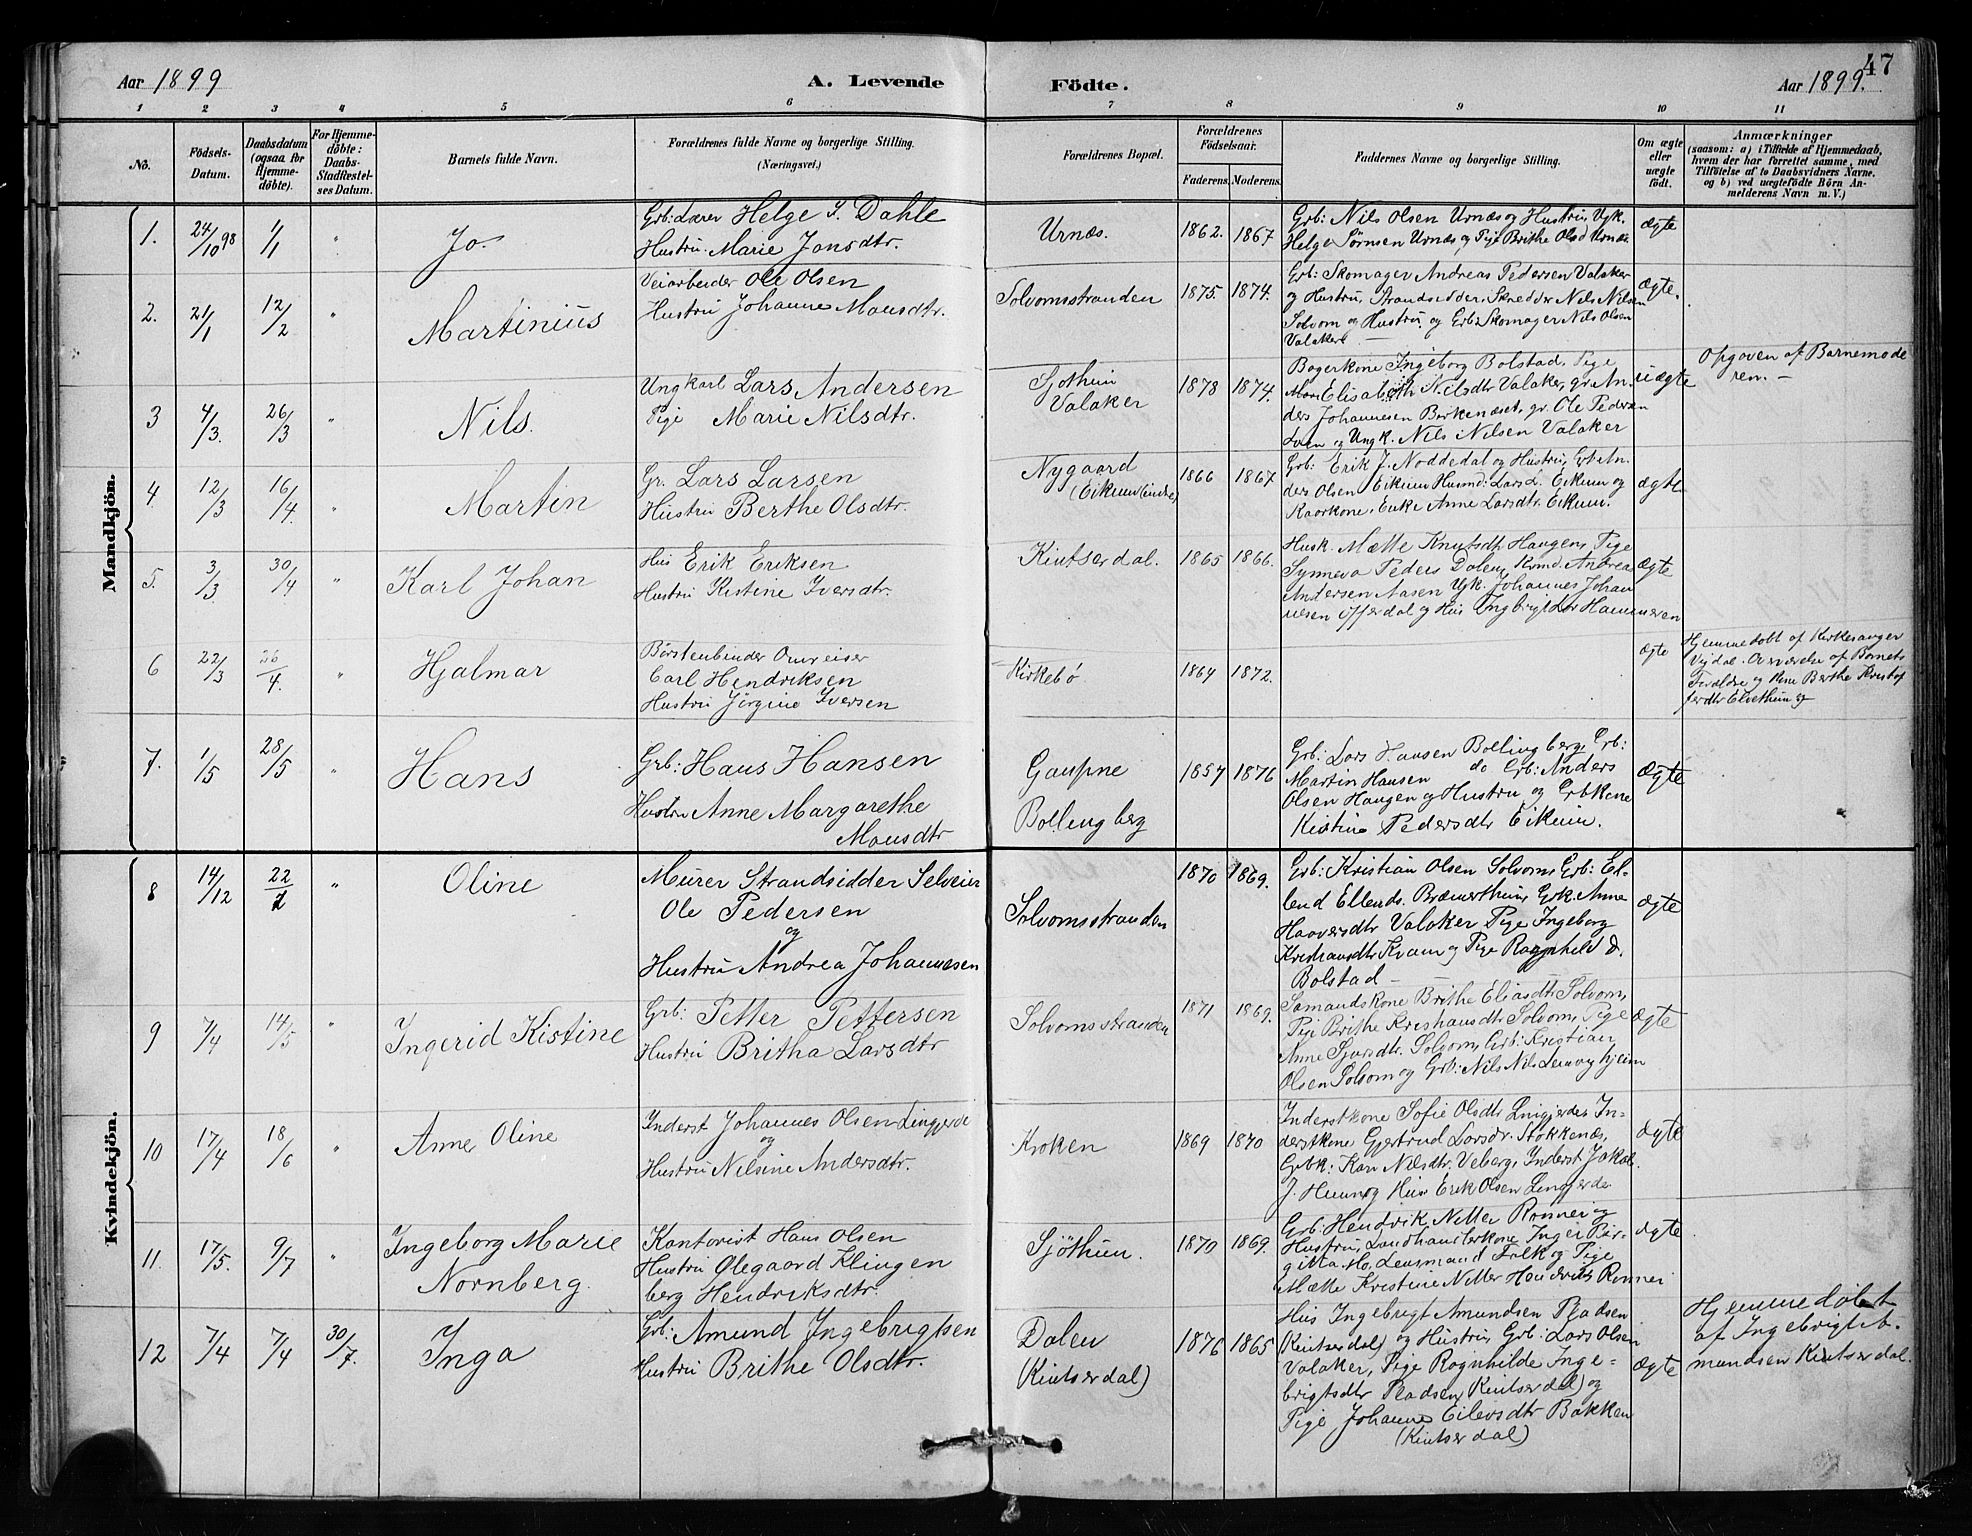 47
Aar 1899
A. Levende
Födte.
Aar 1899.
1 2 3 4 5 6 7 8 9 10 11
No.
Födsels-
Datum.
Daabsdatum
(ogsaa for
Hjemme-
döbte).
For Hjemme-
döbte:
Daabs-
Stadfæstel-
ses Datum.
Barnets fulde Navn.
Forældrenes fulde Navne og borgerlige Stilling.
(Næringsvei.)
Forældrenes Bopæl.
Forældrenes
Födselsaar.
Faderens.
Moderens.
Faddernes Navne og borgerlige Stilling.
Om ægte
eller
uægte
födt.
Anmærkninger
(saasom: a) i Tilfælde af Hjemmedaab,
hvem der har forrettet samme, med
Tilföielse af to Daabsvidners Navne.
og b) ved uægtefödte Börn An-
melderens Navn m. V.)
Mandkjön.
1. 24/10 98 1/1 " Jo.
Grb: Lærer Helge S. Dahle
Hustru Marie Jonsdtr.
Urnæs. 1862. 1867
Grb: Nils Olsen Urnæs og Hustru, Ugk.
Helge Sørnsen Urnæs og Pige Brithe Olsd Urnæs
ægte
2. 21/1 12/2 " Martinius
Veiarbeider Ole Olsen
Hustru Johanne Monsdtr.
Solvomsstranden 1875. 1874.
Grb: Skomager Andreas Pedersen Valaker
og Hustru, Strandsidder, Skredder Nils Nilsen
Solvom og Hustru og Grb: Skomager Nils Olsen
Valaker
ægte.
3 4/3. 26/3 " Nils.
Ungkarl Lars Andersen
Pige Marie Nilsdtr.
Sjøthun
Valaker 1878 1874.
Bagerkone Ingeborg Bolstad, Pige
Elisabeth Nilsdtr Valaker, gr. An-
ders Johannesen Berkenæset, gr. Ole Pedersen
og Ungk. Nils Nilsen Valaker
uægte
Opgaven af Barnemode
ren. -
4 12/3 16/4. " Martin
Gr. Lars Larsen
Hustru Berthe Olsdtr.
Nygaard
1866 1867
Grb: Erik J. Noddedal og Hustru, Grb. An-
ders Olsen Eikum Husmd: Lars L. Eikum og
Kaarkone, Enke Anne Larsdtr. Eikum.
ægte
5. 3/3. 30/4 " Karl Johan
Hus Erik Eriksen
Hustru Kistine Iversdtr.
Kintserdal. 1865 1866.
Husk. Mætte Knutsdtr Haugen, Pige
Synneva Peders Dalen, Kvmd. Andreas
Andersen Aasen Ugk. Johannes Johan
nesen Offerdal og Hus Ingbrigt Hammeren
ægte
6 22/3 26/4. " Hjalmar
Børstenbinder Omreiser
Carl Hendriksen
Hustru Jörgine Iversen
Kirkebø 1864 1872.
ægte
Hjemmedøbt af Kirkesanger
Vigdal. Overværelse af Barnets
Forældre og Kone Berthe Kristof
ferdtr Elvethun
7. 1/5 28/5 " Hans
Grb: Hans Hansen
Hustru Anne Margarethe
Monsdtr
Gaupne
Bollingberg 1857 1876
Grb: Lars Hansen Bollingberg, Grb:
Martin Hansen do Grb: Anders
Olsen Haugen og Hustru og Grbkone
Kistine Pedersdtr Eikum.
ægte
Kvindekjön.
8 14/12 22/1 " Oline
Murer Strandsidder Selveier
Ole Pedersen
og
Hustru Andrea Johannesen
Solvomsstranden 1870 1869.
Grb: Kristian Olsen Solvom, Grb: El-
lend Ellends. Bræmerthun, Grk. Anne
Haaversdtr Valaker Pige Ingeborg
Kristiansdtr Kvam og Pige Ragnhild D.
Bolstad -
ægte
9 7/4 14/5 " Ingerid Kistine
Grb: Petter Pettersen
Hustru Britha Larsdtr
Solvomsstranden 1871 1869.
Sømandskone Brithe Eliasdtr Solvom,
Pige Brithe Kristiansdtr Solvom, Pige
Anne Sjursdtr. Solvom, Grb: Kristian
Olsen Solvom og Grb: Nils Nilsen
ægte
10 17/4 18/6 " Anne Oline
Inderst Johannes Olsen Lingjerde
og
Hustru Nilsine Andersdtr.
Kroken 1869 1870
Inderstkone Sofie Olsdtr Lingjerde, In-
derstkone Gjertrud Larsdr. Stokkenæs,
Grbk: Kari Nilsdtr. Veberg, Inderst Jakob
J. og Hus Erik Olsen Lingjerde
ægte
11. 17/5. 9/7 " Ingeborg Marie
Nornberg.
Kontorist Hans Olsen
Hustru Olegaard Klingen
berg Hendriksdtr.
Sjöthun. 1870 1869.
Grb: Hendrik Nitter Ronnei og
Hustru, Landhandlerkone Inger Bir-
gitta Mo, Lensmand Falk og Pige
Mætte Kristine Nitter Hendriks Ronnei
ægte
12 7/4 7/4 30/7. Inga
Grb: Amund Ingebrigtsen
Hustru Brithe Olsdtr.
Dalen
(Kintserdal) 1876 1865
Hus Ingebrigt Amundsen Pladsen
(Kintserdal) og Hustru, Grb: Lars Olsen
Valaker, Pige Ragnhilde Inge-
brigtsdtr Pladsen, Kintserdal) og
Pige Johanne Eilevsdtr Bakken
(Kintserdal)
ægte
Hjemmedøbt
af Ingebrigt A.
mundsen Kintserdal.